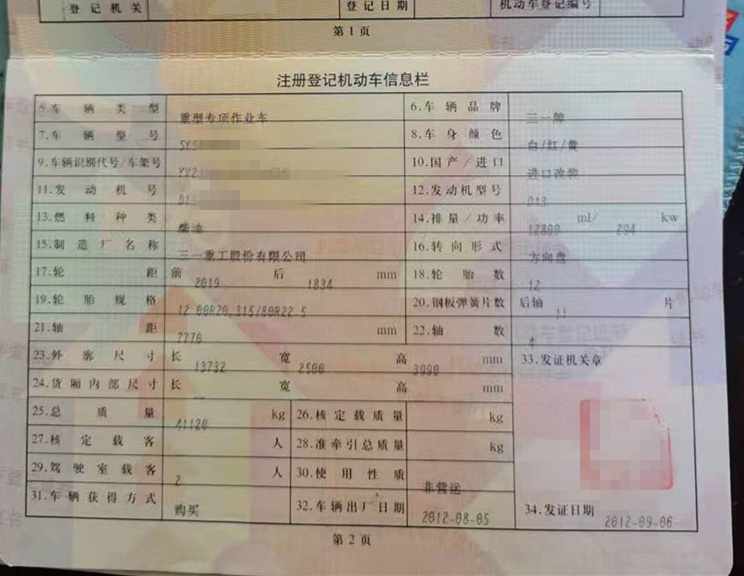 登记机关 登记日期 机动车登记编号
第1页
注册登记机动车信息栏
5.车辆类型 重型专项作业车 6.车辆品牌 三一牌
7.车辆型号 SY5 8.车身颜色 白/红/黄
9.车辆识别代号/车架号 YV2 10.国产/进口 进口改装
11.发动机号 D13 12.发动机型号 D13
13.燃料种类 柴油 14.排量/功率 12800 ml/ 294 kw
15.制造厂名称 三一重工股份有限公司 16.转向形式 方向盘
17.轮距 前 2019 后 1834 mm 18.轮胎数 12
19.轮胎规格 12.00R20,315/80R22.5 20.钢板弹簧片数 后轴 11 片
21.轴距 7770 mm 22.轴数 4
23.外廓尺寸 长 13732 宽 2500 高 3990 mm 33.发证机关章
24.货厢内部尺寸 长 宽 高 mm
25.总质量 41120 kg 26.核定载质量 kg
27.核定载客 人 28.准牵引总质量 kg
29.驾驶室载客 2 人 30.使用性质 非营运
31.车辆获得方式 购买 32.车辆出厂日期 2012-08-05 34.发证日期 2012-09-06
第2页